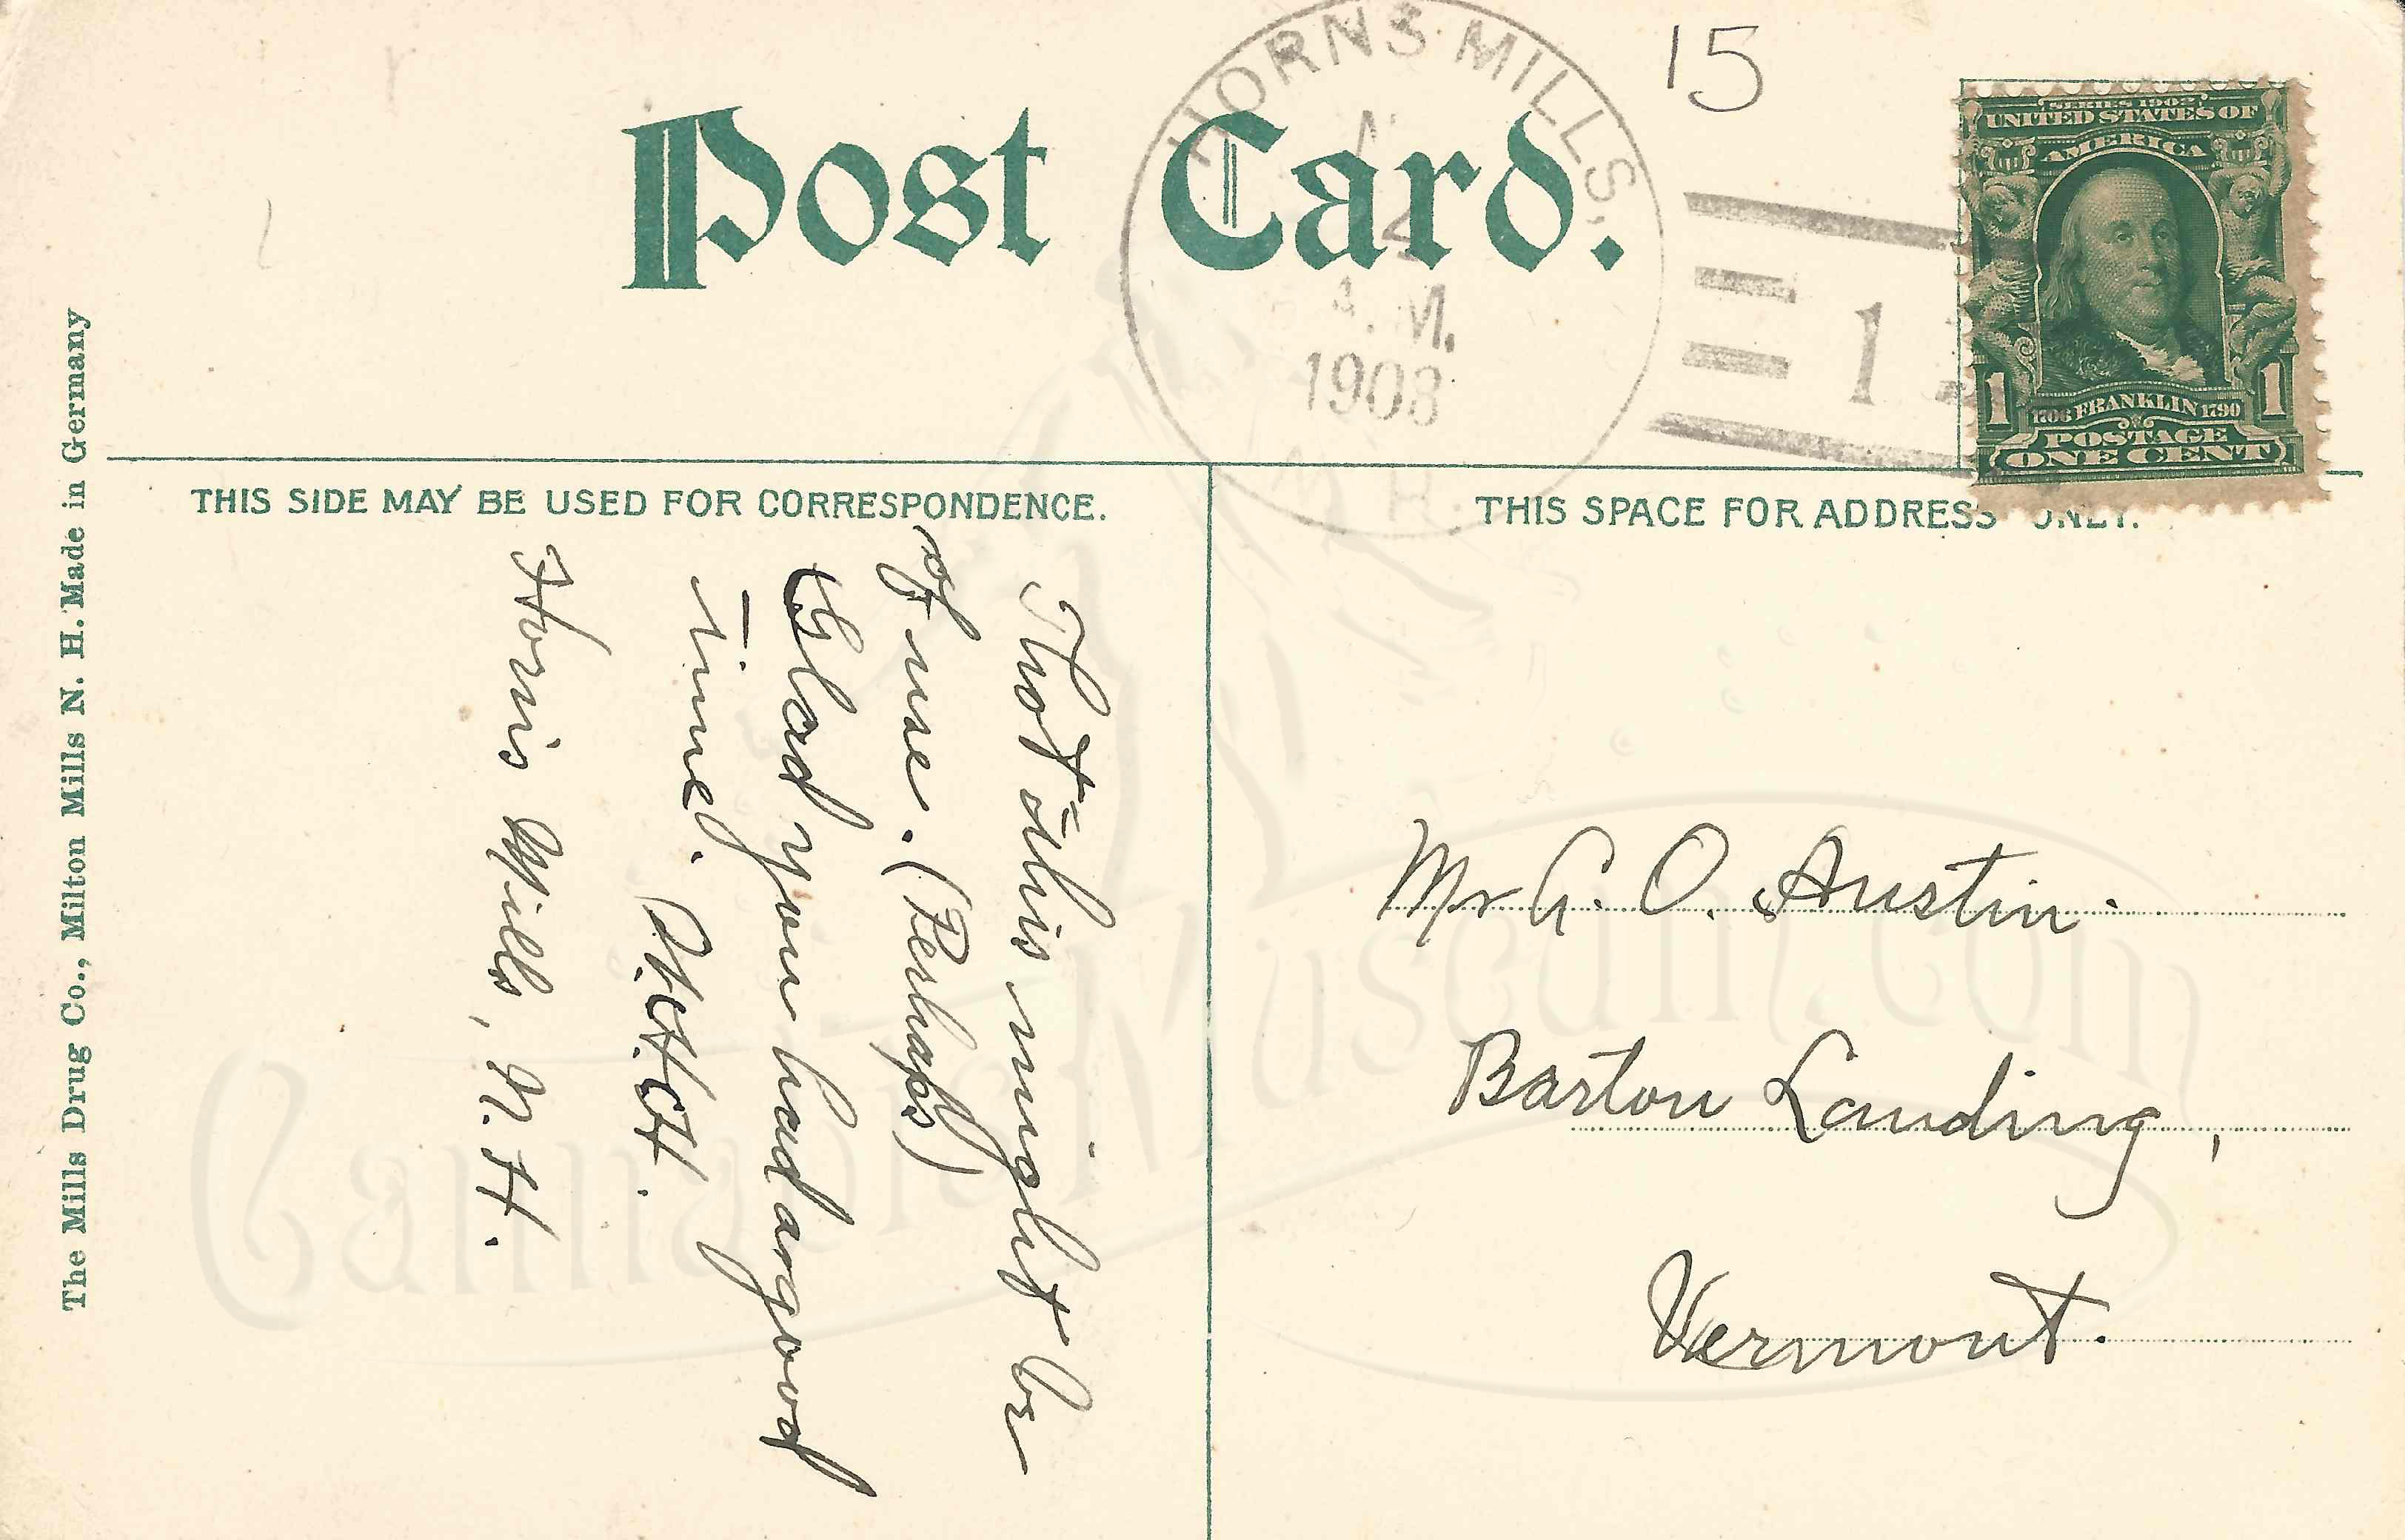 HORNS MILLS,
A.M.
1908
15
Post Card.
SERIES 1902
UNITED STATES OF
AMERICA
1 1
1706 FRANKLIN 1790
POSTAGE
ONE CENT
1
THIS SIDE MAY BE USED FOR CORRESPONDENCE.
THIS SPACE FOR ADDRESS ONLY.
Thot this might be
of use. (Perhaps)
Glad you had a good
time.
Horns Mills, N.H.
Mr A. O. Austin.
Barton Landing,
Vermont.
The Mills Drug Co., Milton Mills N. H. Made in Germany
CannabisMuseum.com